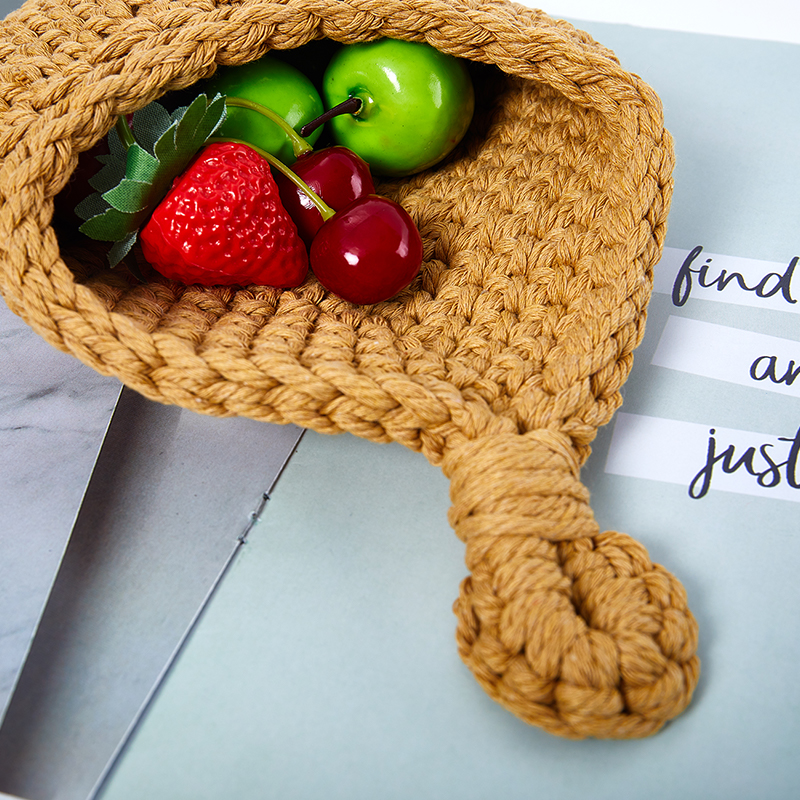 find
an
just